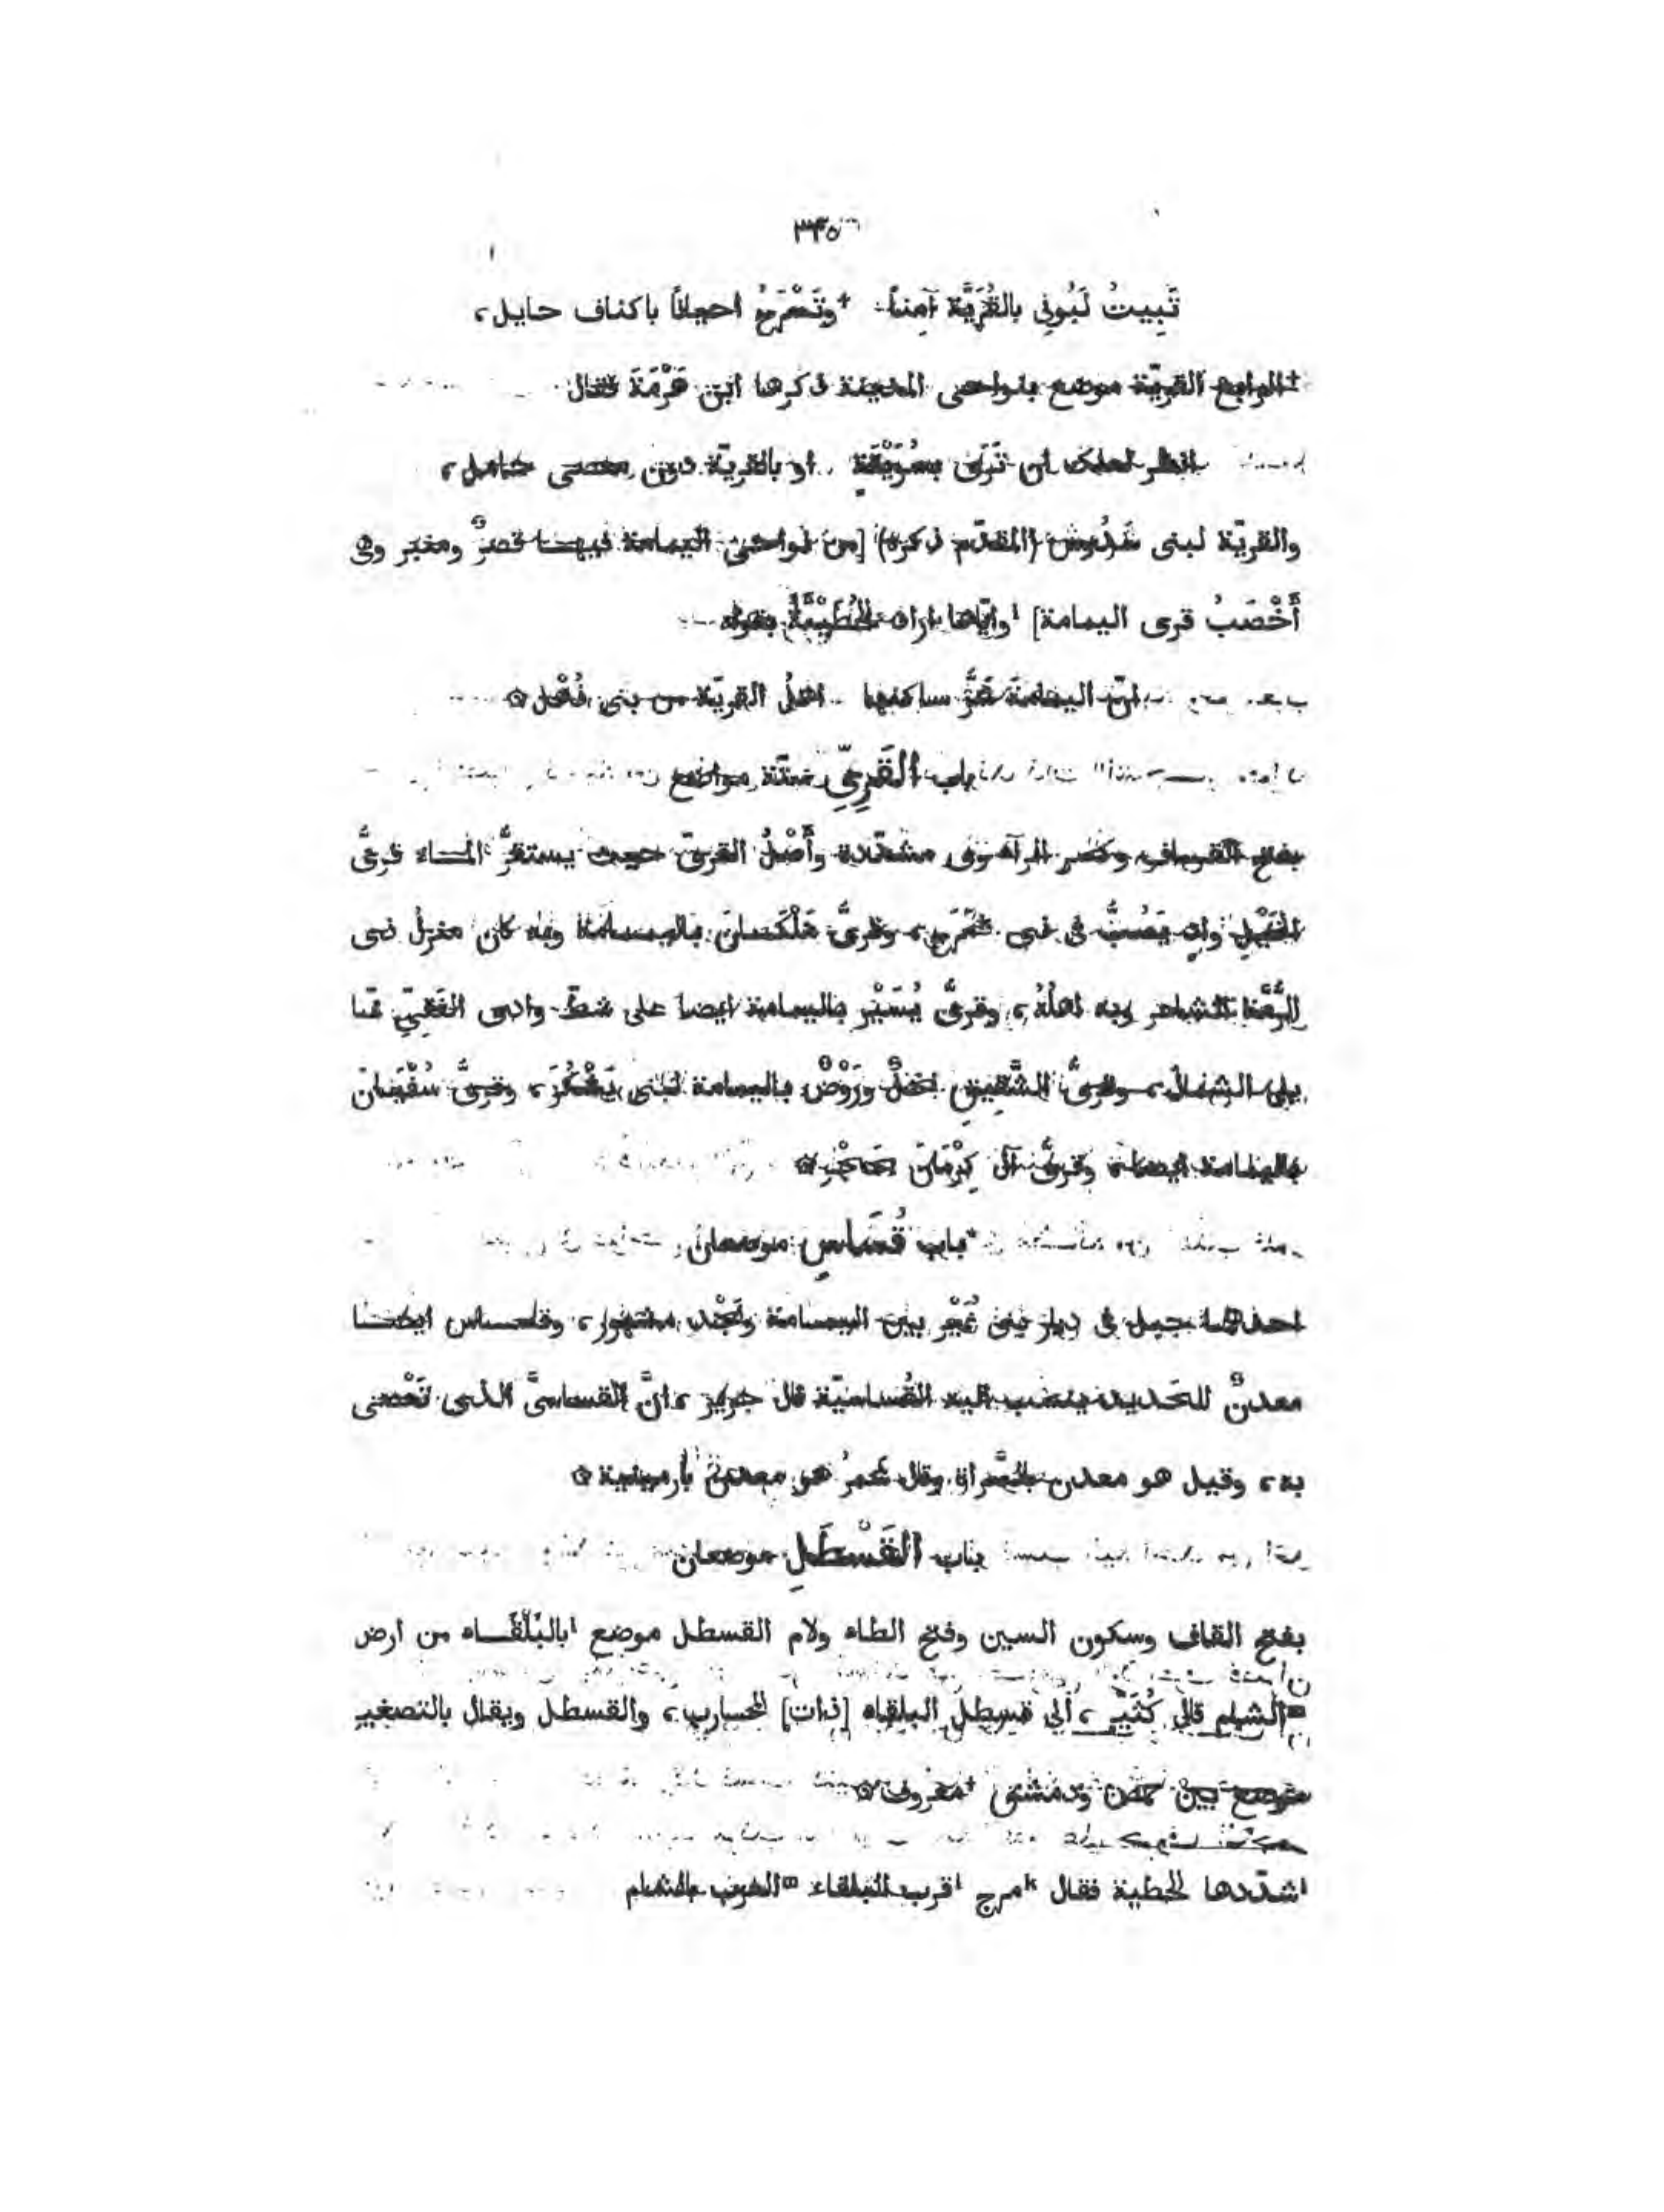 ٣٤٥
تَبِيتُ لَبُونِى بالقُرَيَّة آمِنًا وتَسْرَحُ احيانًا باكناف حايل،
الرابع القريّة موضع بنواحى المدينة ذكرها ابن هَرْمَةَ فقال
انظر لعلك ان تَرَى بسُوَيْقَةٍ او بالقريّة دون مفضى عاقل،
والقريّة لبنى سَدُوس (المقدّم ذكره) [من نواحى اليمامة فيها قصرٌ ومنبر وهى
أَخْصَبُ قرى اليمامة] ¹وايّاها اراد الحُطَيْئَةُ بقوله
انّ اليمامة شَرُّ ساكنها اهلُ القريّة من بنى ذُهْل۞
باب القَرِىِّ ستّة مواضع
بفتح القاف وكسر الرآء وى مشدّدة وأَصْلُ القرىّ حيث يستقرُّ الماء قرىُّ
الخَيْلِ وادٍ يَصُبُّ فى ذى مَرَخٍ، وقرىُّ مَلْكَان باليمامة وبه كان منزل ذى
الرُّمَّة الشاعر وبه اهلُهُ، وقرىُّ بُسَيْر باليمامة ايضا على شطّ وادى الفَقِىّ مّما
يلى الشمال، وقرىُّ الشَّقِيقِ نخلٌ ورَوْضٌ باليمامة لبنى يَشْكُرَ، وقرىُّ سُفْيَانَ
باليمامة ايضا، وقرىُّ آل كِرْمَانَ
*باب قُسَاسٍ موضعان
احدهما جبل فى ديار بنى نُمَيْر بين اليمامة ونَجْد مشهور، وقساس ايضا
معدنٌ للحَديد ينسب اليه القُساسيّة قال جرير، انَّ القساسىَّ الذى تَعْصى
به، وقيل هو معدن بالسَّراة وقال شمرُ هو معدن بأرمينية۞
باب القَسْطَلِ موضعان
بفتح القاف وسكون السين وفتح الطاء ولام القسطل موضع ˡبالبَلْقَاء من ارض
ᵐالشام قال كُثَيِّر، الى قسطل البلقاء [ذات] المحارب، والقسطل ويقال بالتصغير
موضع بين حمص ودمشق ⁺معروف۞
ⁱشدّدها الحطية فقال ᵏمرج ˡقرب البلقاء ᵐالعرب بالشام